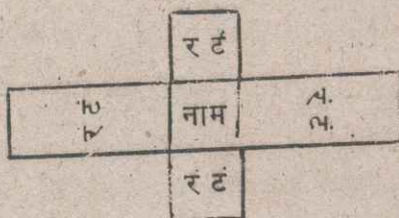 र टं
र टं
नाम
रं टं